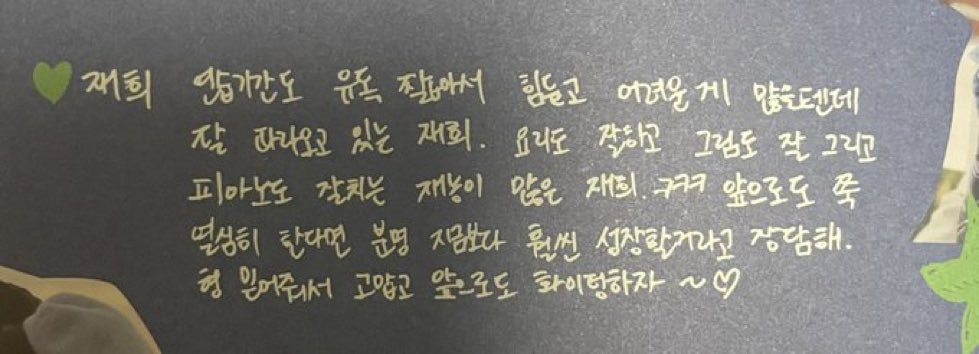 재희 연습기간도 유독 짧아서 힘들고 어려울 게 많을텐데
잘 따라오고 있는 재희. 요리도 잘하고 그림도 잘 그리고
피아노도 잘치는 재능이 많은 재희. ㅋㅋㅋ 앞으로도 쭉
열심히 한다면 분명 지금보다 훨씬 성장할거라고 장담해.
형 믿어줘서 고맙고 앞으로도 화이팅하자 ~♡